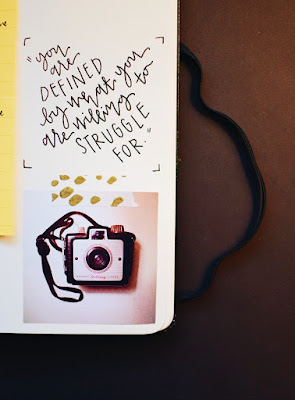 "you
are
DEFINED
by what you
are willing to
STRUGGLE
FOR."